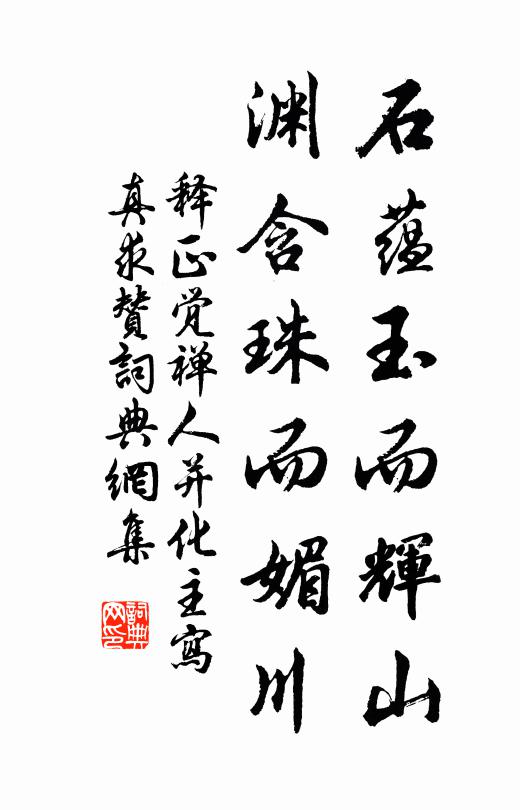 石蕴玉而輝山
渊含珠而媚川
释正觉禅人并化主寫
真求赞詞典網集
詞典
网印